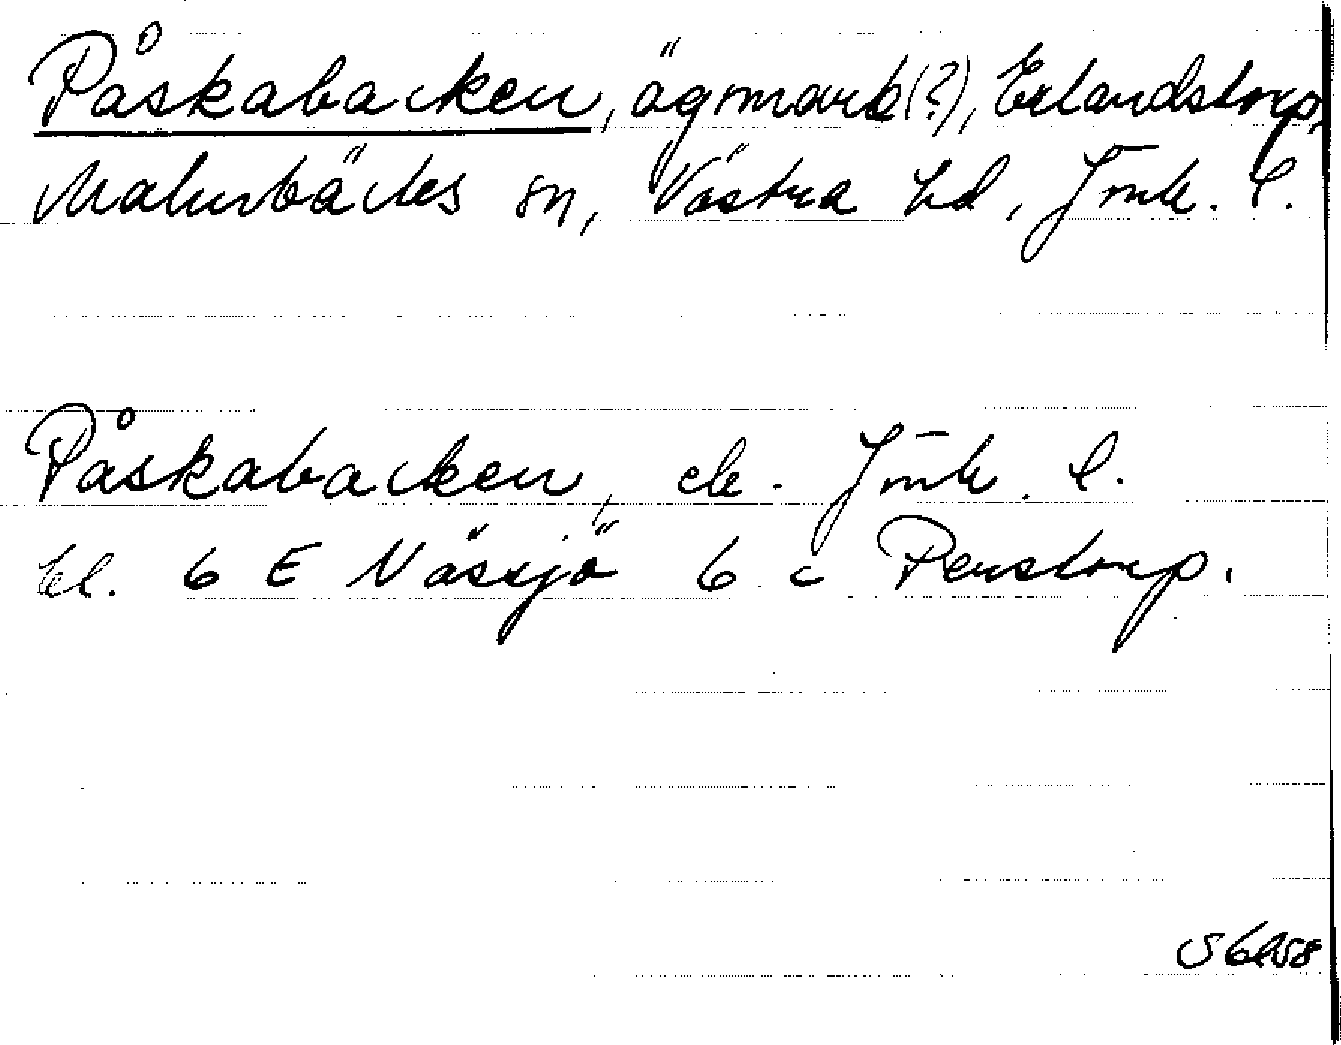 Påskabacken, ägomark(?), Erlandstorp,
Malmbäcks sn, Västra hd, Jönk. l.
Påskabacken, ek. Jönk. l.
bl. 6 E Nässjö 6 c Perstorp.